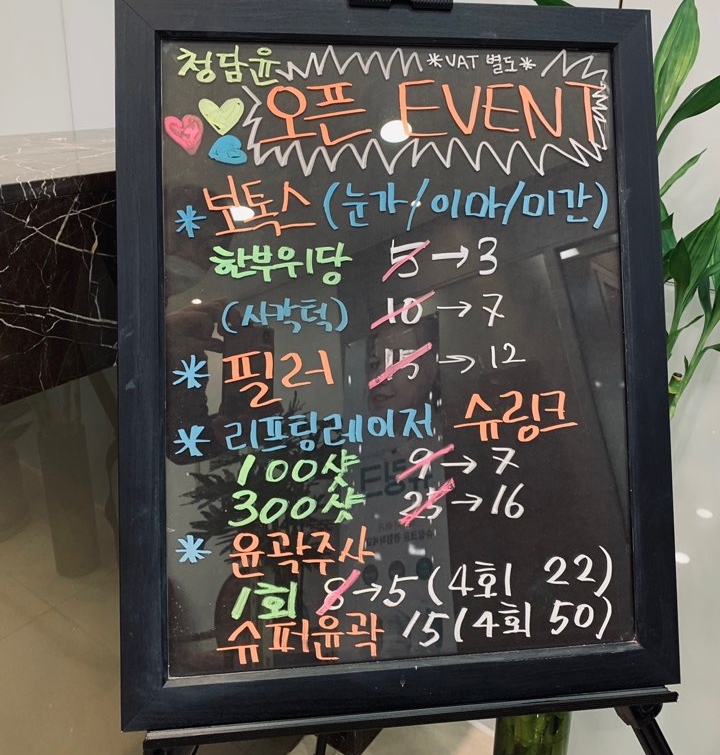 청담윤 *VAT 별도*
오픈 EVENT
* 보톡스 (눈가/이마/미간)
한부위당 5→3
(사각턱) 10→7
* 필러 15→12
* 리프팅레이저 슈링크
100샷 9→7
300샷 25→16
* 윤곽주사
1회 8→5 (4회 22)
슈퍼윤곽 15 (4회 50)